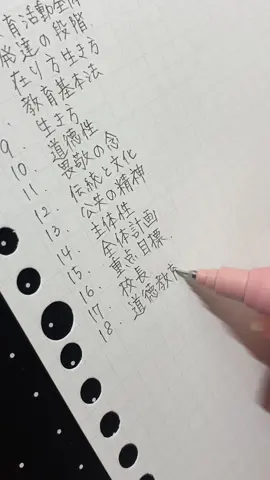 育活動全体
発達の段階
在り方生き方
教育基本法
9. 生き方
10. 道徳性
11. 畏敬の念
12. 伝統と文化
13. 公共の精神
14. 主体性
15. 全体計画
16. 重点目標
17. 校長
18. 道徳教育